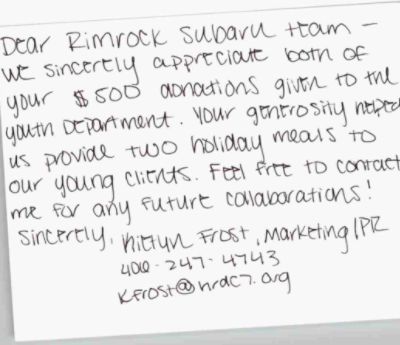 Dear Rimrock Subaru team -
We sincerely appreciate both of
your $500 donations given to the
youth department. Your generosity helped
us provide two holiday meals to
our young clients. Feel free to contact
me for any future collaborations!
Sincerely, Frost, Marketing/PR
406-247-4743
Kfrost@hrdc7.org